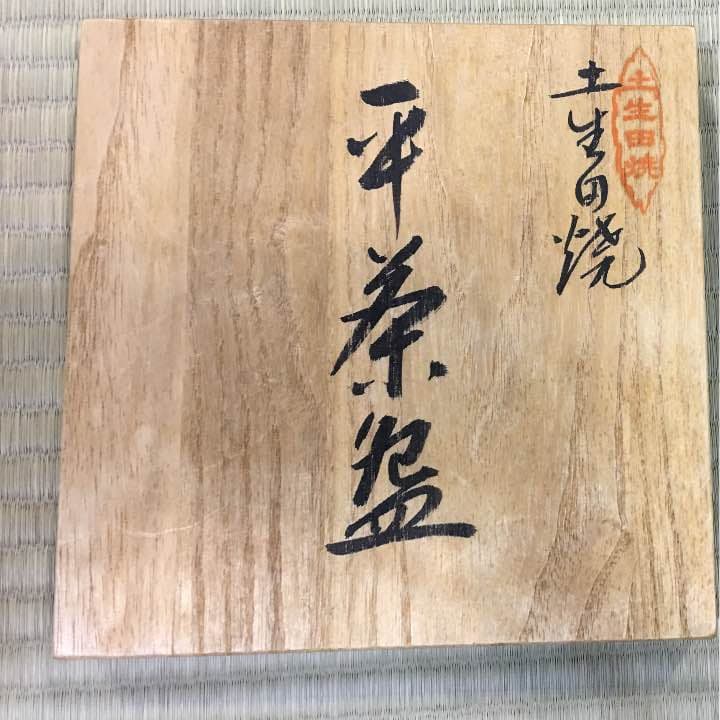 土生田焼
土生田焼
平茶盌